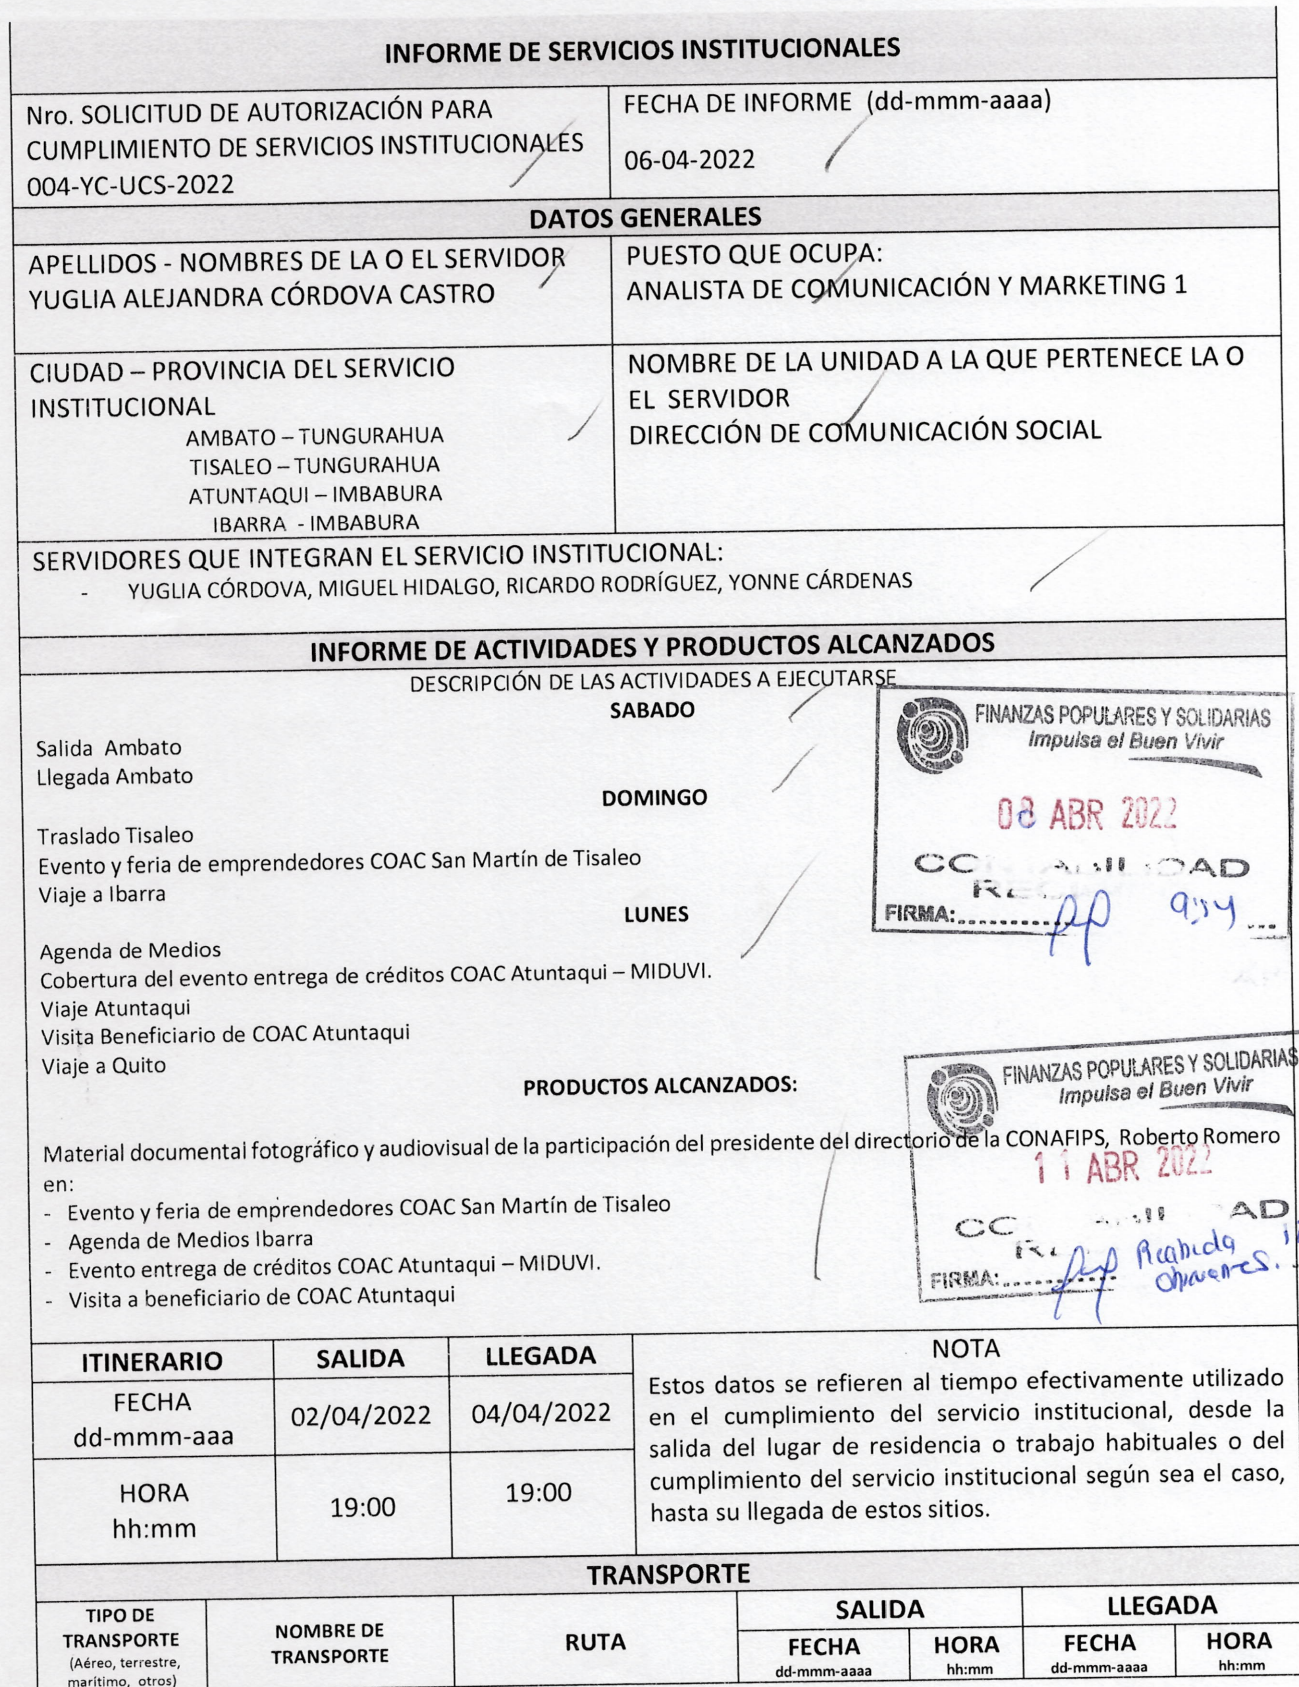 INFORME DE SERVICIOS INSTITUCIONALES
Nro. SOLICITUD DE AUTORIZACIÓN PARA
CUMPLIMIENTO DE SERVICIOS INSTITUCIONALES
004-YC-UCS-2022
FECHA DE INFORME (dd-mmm-aaaa)
06-04-2022
DATOS GENERALES
APELLIDOS - NOMBRES DE LA O EL SERVIDOR
YUGLIA ALEJANDRA CÓRDOVA CASTRO
PUESTO QUE OCUPA:
ANALISTA DE COMUNICACIÓN Y MARKETING 1
CIUDAD – PROVINCIA DEL SERVICIO
INSTITUCIONAL
AMBATO – TUNGURAHUA
TISALEO – TUNGURAHUA
ATUNTAQUI – IMBABURA
IBARRA - IMBABURA
NOMBRE DE LA UNIDAD A LA QUE PERTENECE LA O
EL SERVIDOR
DIRECCIÓN DE COMUNICACIÓN SOCIAL
SERVIDORES QUE INTEGRAN EL SERVICIO INSTITUCIONAL:
- YUGLIA CÓRDOVA, MIGUEL HIDALGO, RICARDO RODRÍGUEZ, YONNE CÁRDENAS
INFORME DE ACTIVIDADES Y PRODUCTOS ALCANZADOS
DESCRIPCIÓN DE LAS ACTIVIDADES A EJECUTARSE
SABADO
Salida Ambato
Llegada Ambato
DOMINGO
Traslado Tisaleo
Evento y feria de emprendedores COAC San Martín de Tisaleo
Viaje a Ibarra
LUNES
Agenda de Medios
Cobertura del evento entrega de créditos COAC Atuntaqui – MIDUVI.
Viaje Atuntaqui
Visita Beneficiario de COAC Atuntaqui
Viaje a Quito
FINANZAS POPULARES Y SOLIDARIAS
Impulsa el Buen Vivir
08 ABR 2022
FIRMA:
PRODUCTOS ALCANZADOS:
Material documental fotográfico y audiovisual de la participación del presidente del directorio de la CONAFIPS, Roberto Romero
en:
- Evento y feria de emprendedores COAC San Martín de Tisaleo
- Agenda de Medios Ibarra
- Evento entrega de créditos COAC Atuntaqui – MIDUVI.
- Visita a beneficiario de COAC Atuntaqui
FINANZAS POPULARES Y SOLIDARIAS
Impulsa el Buen Vivir
11 ABR 2022
FIRMA:
ITINERARIO SALIDA LLEGADA
FECHA
dd-mmm-aaa
02/04/2022 04/04/2022
HORA
hh:mm
19:00 19:00
NOTA
Estos datos se refieren al tiempo efectivamente utilizado
en el cumplimiento del servicio institucional, desde la
salida del lugar de residencia o trabajo habituales o del
cumplimiento del servicio institucional según sea el caso,
hasta su llegada de estos sitios.
TRANSPORTE
TIPO DE
TRANSPORTE
(Aéreo, terrestre,
marítimo, otros)
NOMBRE DE
TRANSPORTE
RUTA
SALIDA
LLEGADA
FECHA
dd-mmm-aaaa
HORA
hh:mm
FECHA
dd-mmm-aaaa
HORA
hh:mm